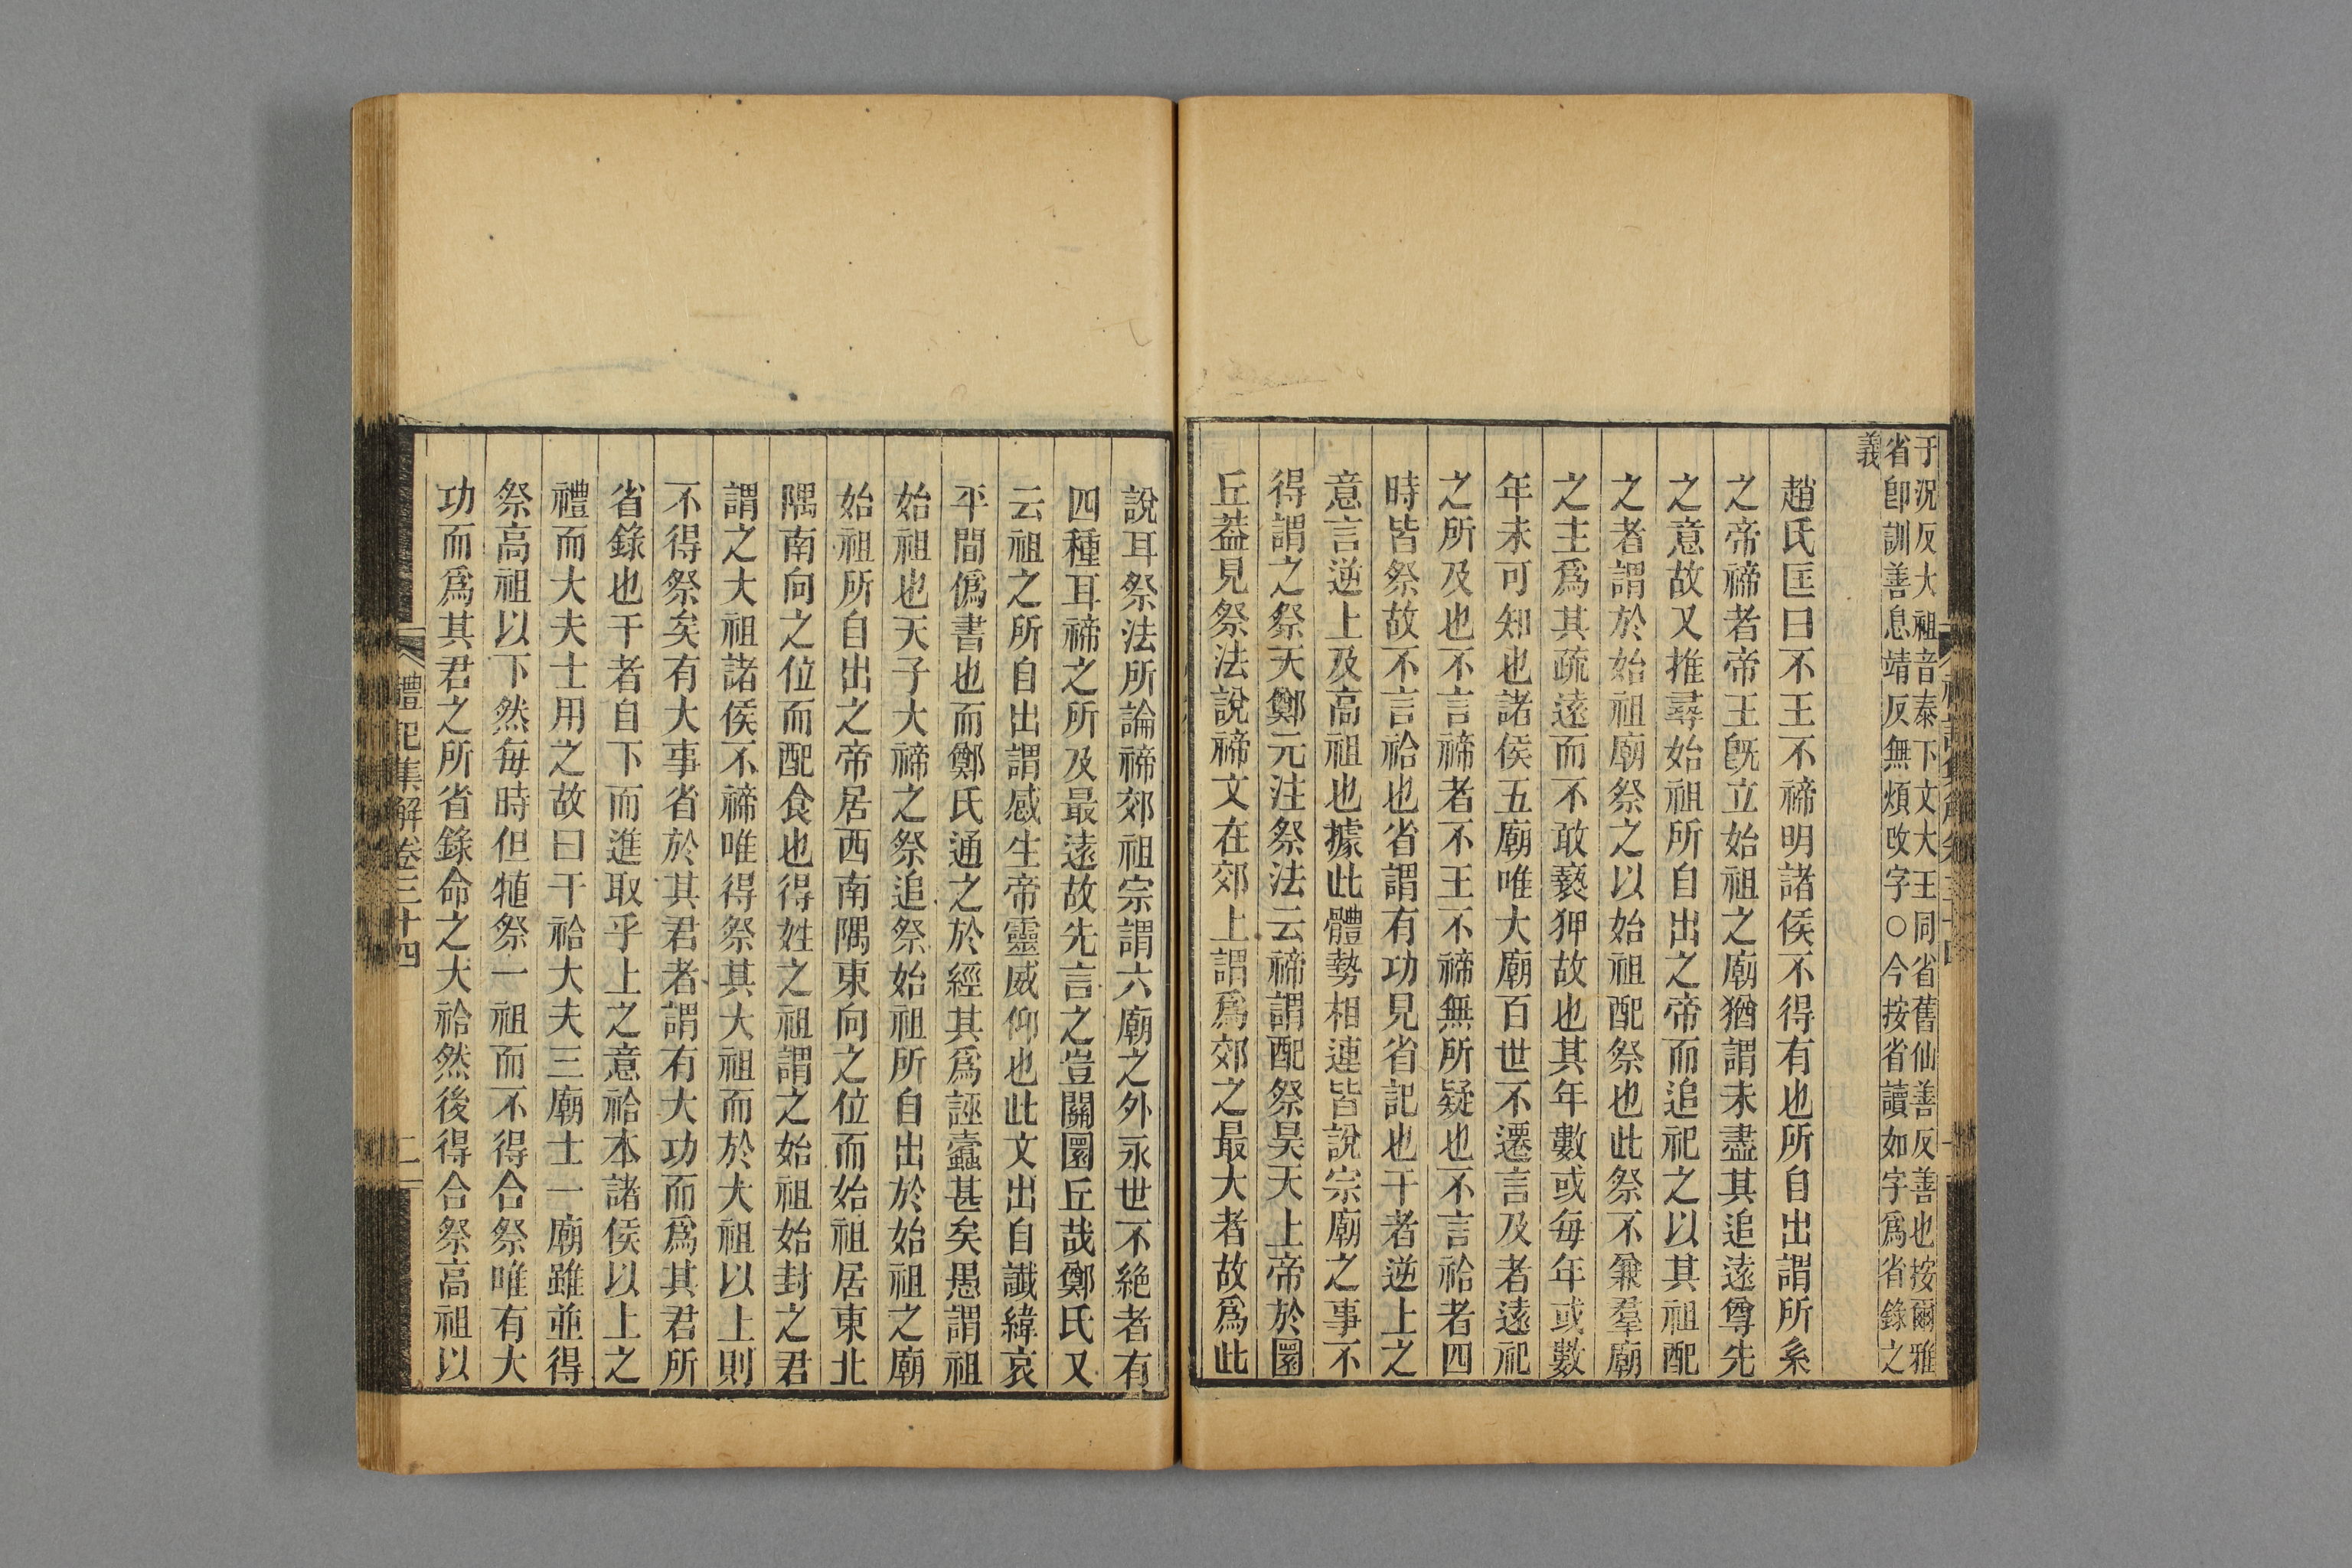 于況反大祖音泰下文大王同省舊仙善反善也按爾雅
省卽訓善息靖反無煩改字○今按省讀如字爲省錄之
義
趙氏匡曰不王不禘明諸侯不得有也所自出謂所系
之帝禘者帝王旣立始祖之廟猶謂未盡其追遠尊先
之意故又推尋始祖所自出之帝而追祀之以其祖配
之者謂於始祖廟祭之以始祖配祭也此祭不兼羣廟
之主爲其疏遠而不敢褻狎故也其年數或每年或數
年未可知也諸侯五廟唯大廟百世不遷言及者遠祀
之所及也不言禘者不王不禘無所疑也不言祫者四
時皆祭故不言祫也省謂有功見省記也干者逆上之
意言逆上及高祖也據此體勢相連皆說宗廟之事不
得謂之祭天鄭元注祭法云禘謂配祭昊天上帝於圜
丘葢見祭法說禘文在郊上謂爲郊之最大者故爲此
說耳祭法所論禘郊祖宗謂六廟之外永世不絶者有
四種耳禘之所及最遠故先言之豈關圜丘哉鄭氏又
云祖之所自出謂感生帝靈威仰也此文出自讖緯哀
平間僞書也而鄭氏通之於經其爲誣蠹甚矣愚謂祖
始祖也天子大禘之祭追祭始祖所自出於始祖之廟
始祖所自出之帝居西南隅東向之位而始祖居東北
隅南向之位而配食也得姓之祖謂之始祖始封之君
謂之大祖諸侯不禘唯得祭其大祖而於大祖以上則
不得祭矣有大事省於其君者謂有大功而爲其君所
省錄也干者自下而進取乎上之意祫本諸侯以上之
禮而大夫士用之故曰干祫大夫三廟士一廟雖並得
祭高祖以下然每時但犆祭一祖而不得合祭唯有大
功而爲其君之所省錄命之大祫然後得合祭高祖以
禮記集解卷三十四
二